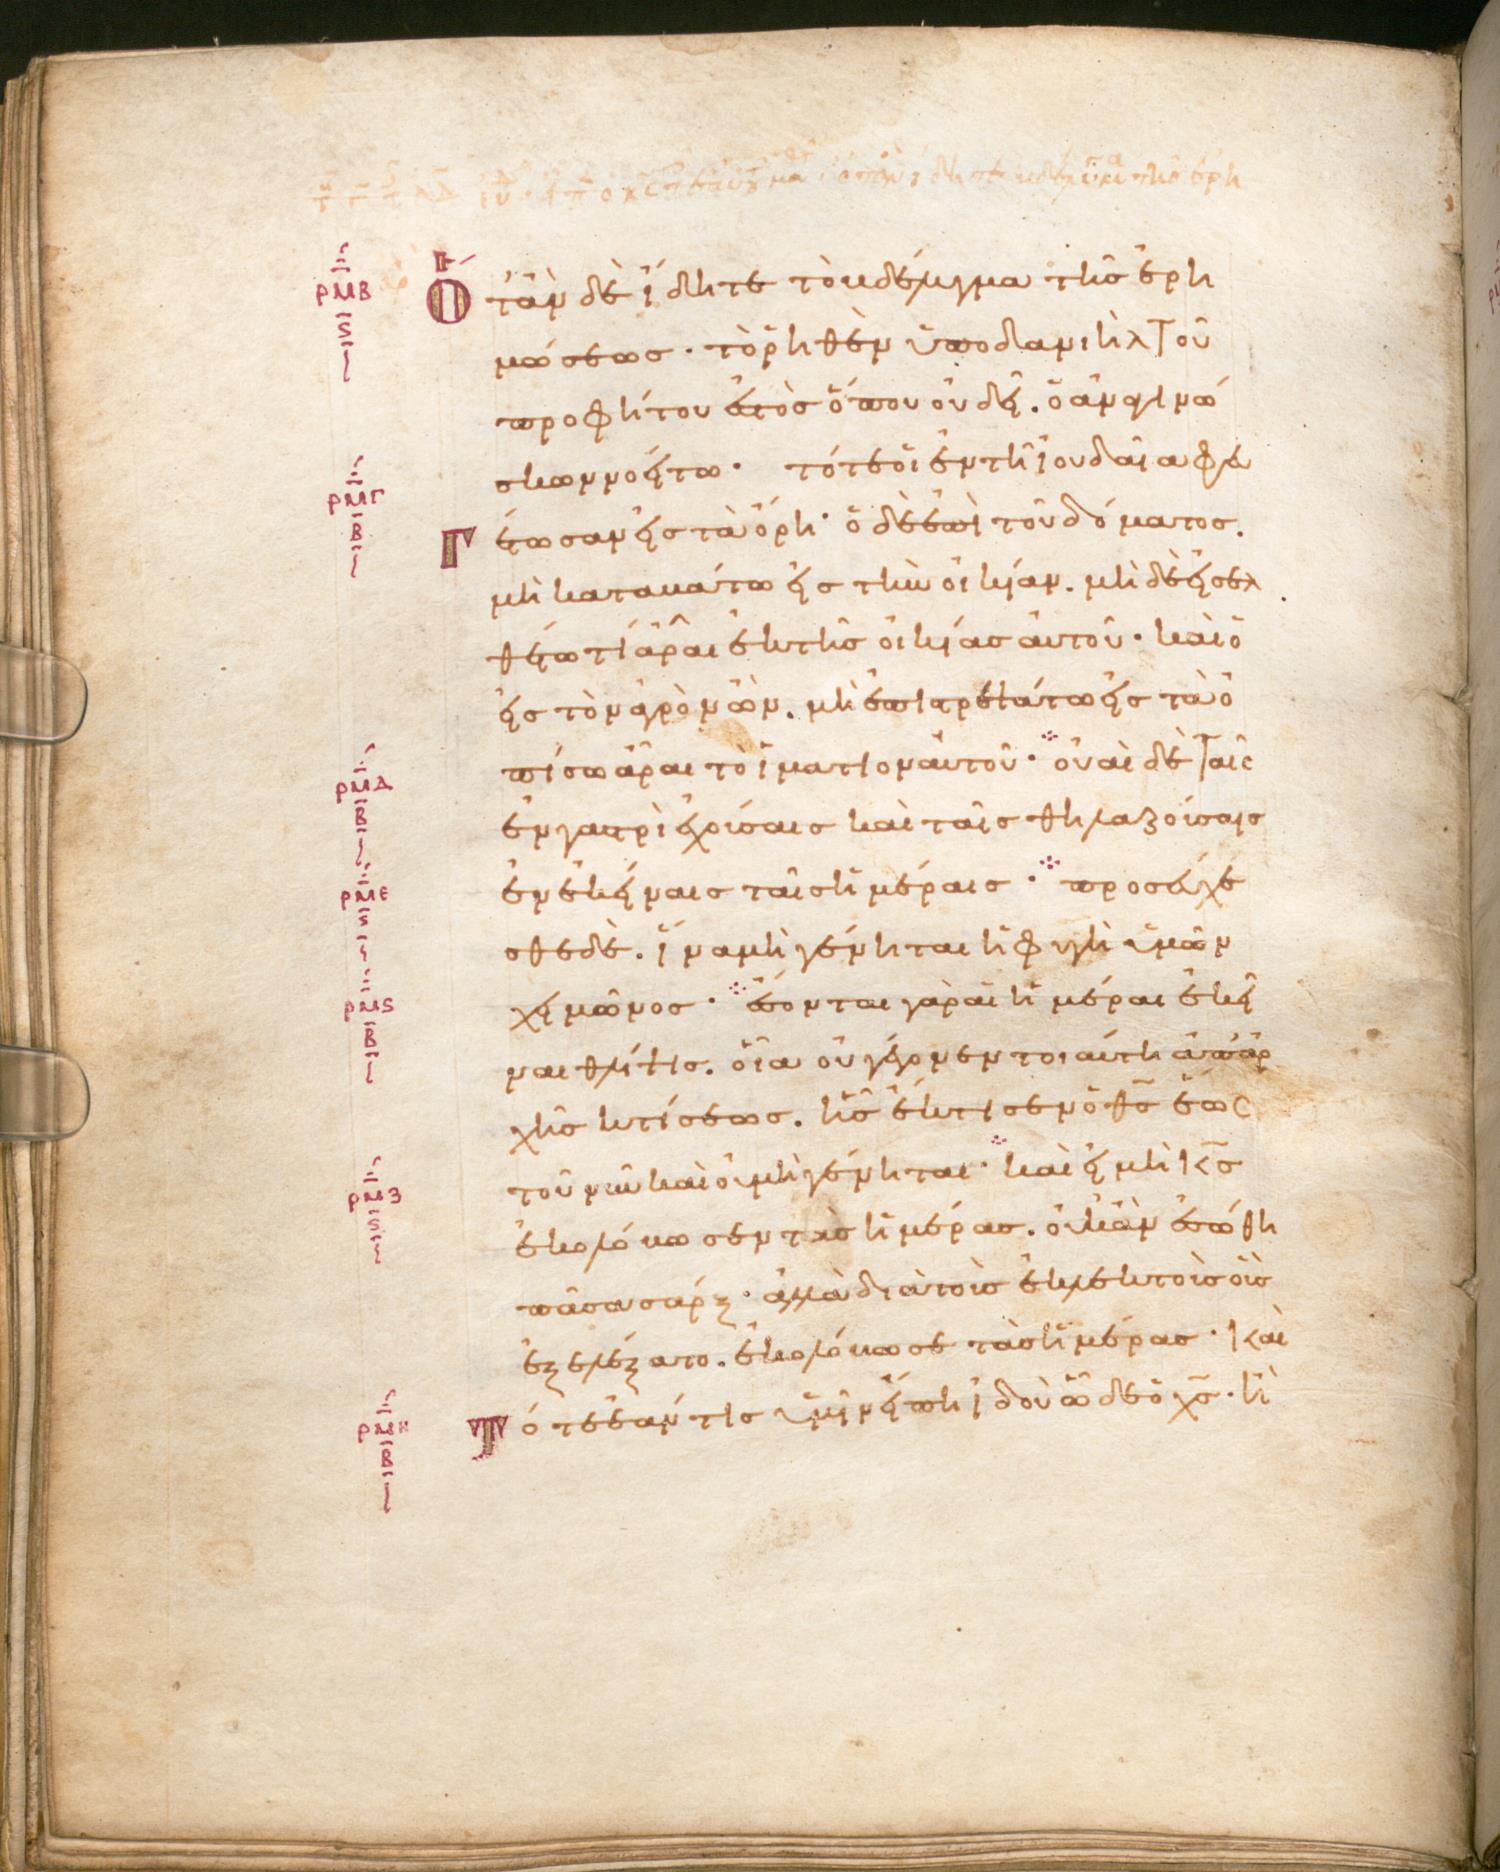 ρ̅μ̅β̅
ς
Ὅταν δὲ ἴδητε τὸ βδέλυγμα τῆς ἐρη
μώσεως· τὸ ῥηθὲν ὑπὸ δανιὴλ τοῦ
προφήτου ἑστὸς ὅπου οὐ δεῖ. ὁ ἀναγινώ
σκων νοείτω· τότε οἱ ἐν τῆ ἰουδαία φευ
ρμγ
β
Γέτωσαν εἰς τὰ ὄρη· ὁ δὲ ἐπὶ τοῦ δόματος.
μὴ καταβάτω εἰς τὴν οἰκίαν. μὴ δὲ εἰσελ
θέτω τί ἆραι ἐκ τῆς οἰκίας αὐτοῦ· καὶ ὁ
εἰς τὸν ἀγρὸν ὢν. μὴ ἐπιστρεψάτω εἰς τὰ ὀ
πίσω ἆραι τὸ ἱμάτιον αὐτοῦ· οὐαὶ δὲ ταῖς
ρμδ
β
ἐν γαστρὶ ἐχούσαις καὶ ταῖς θηλαζούσαις
ἐν ἐκείναις ταῖς ἡμέραις· προσεύχε
ρμε
ς
σθε δὲ. ἵνα μὴ γένηται ἡ φυγὴ ὑμῶν
χειμῶνος· ἔσονται γὰρ αἱ ἡμέραι ἐκεῖ
ρμς
β
ναι θλίψις. οἵα οὐ γέγονεν τοιαύτη ἀπ' ἀρ
χῆς κτίσεως. ἧς ἔκτισεν ὁ θ̅ς̅ ἕως
τοῦ νῦν καὶ οὐ μὴ γένηται· καὶ εἰ μὴ κ̅ς̅
ρμζ
ς
ἐκολόβωσεν τὰς ἡμέρας. οὐκ ἂν ἐσώθη
πᾶσα σάρξ· ἀλλὰ διὰ τοὺς ἐκλεκτοὺς οὓς
ἐξελέξατο. ἐκολόβωσε τὰς ἡμέρας· καὶ
ρμη
β
Τότε ἐάν τις ὑμῖν εἴπη ἰδοὺ ὧδε ὁ χ̅ς̅· ἢ